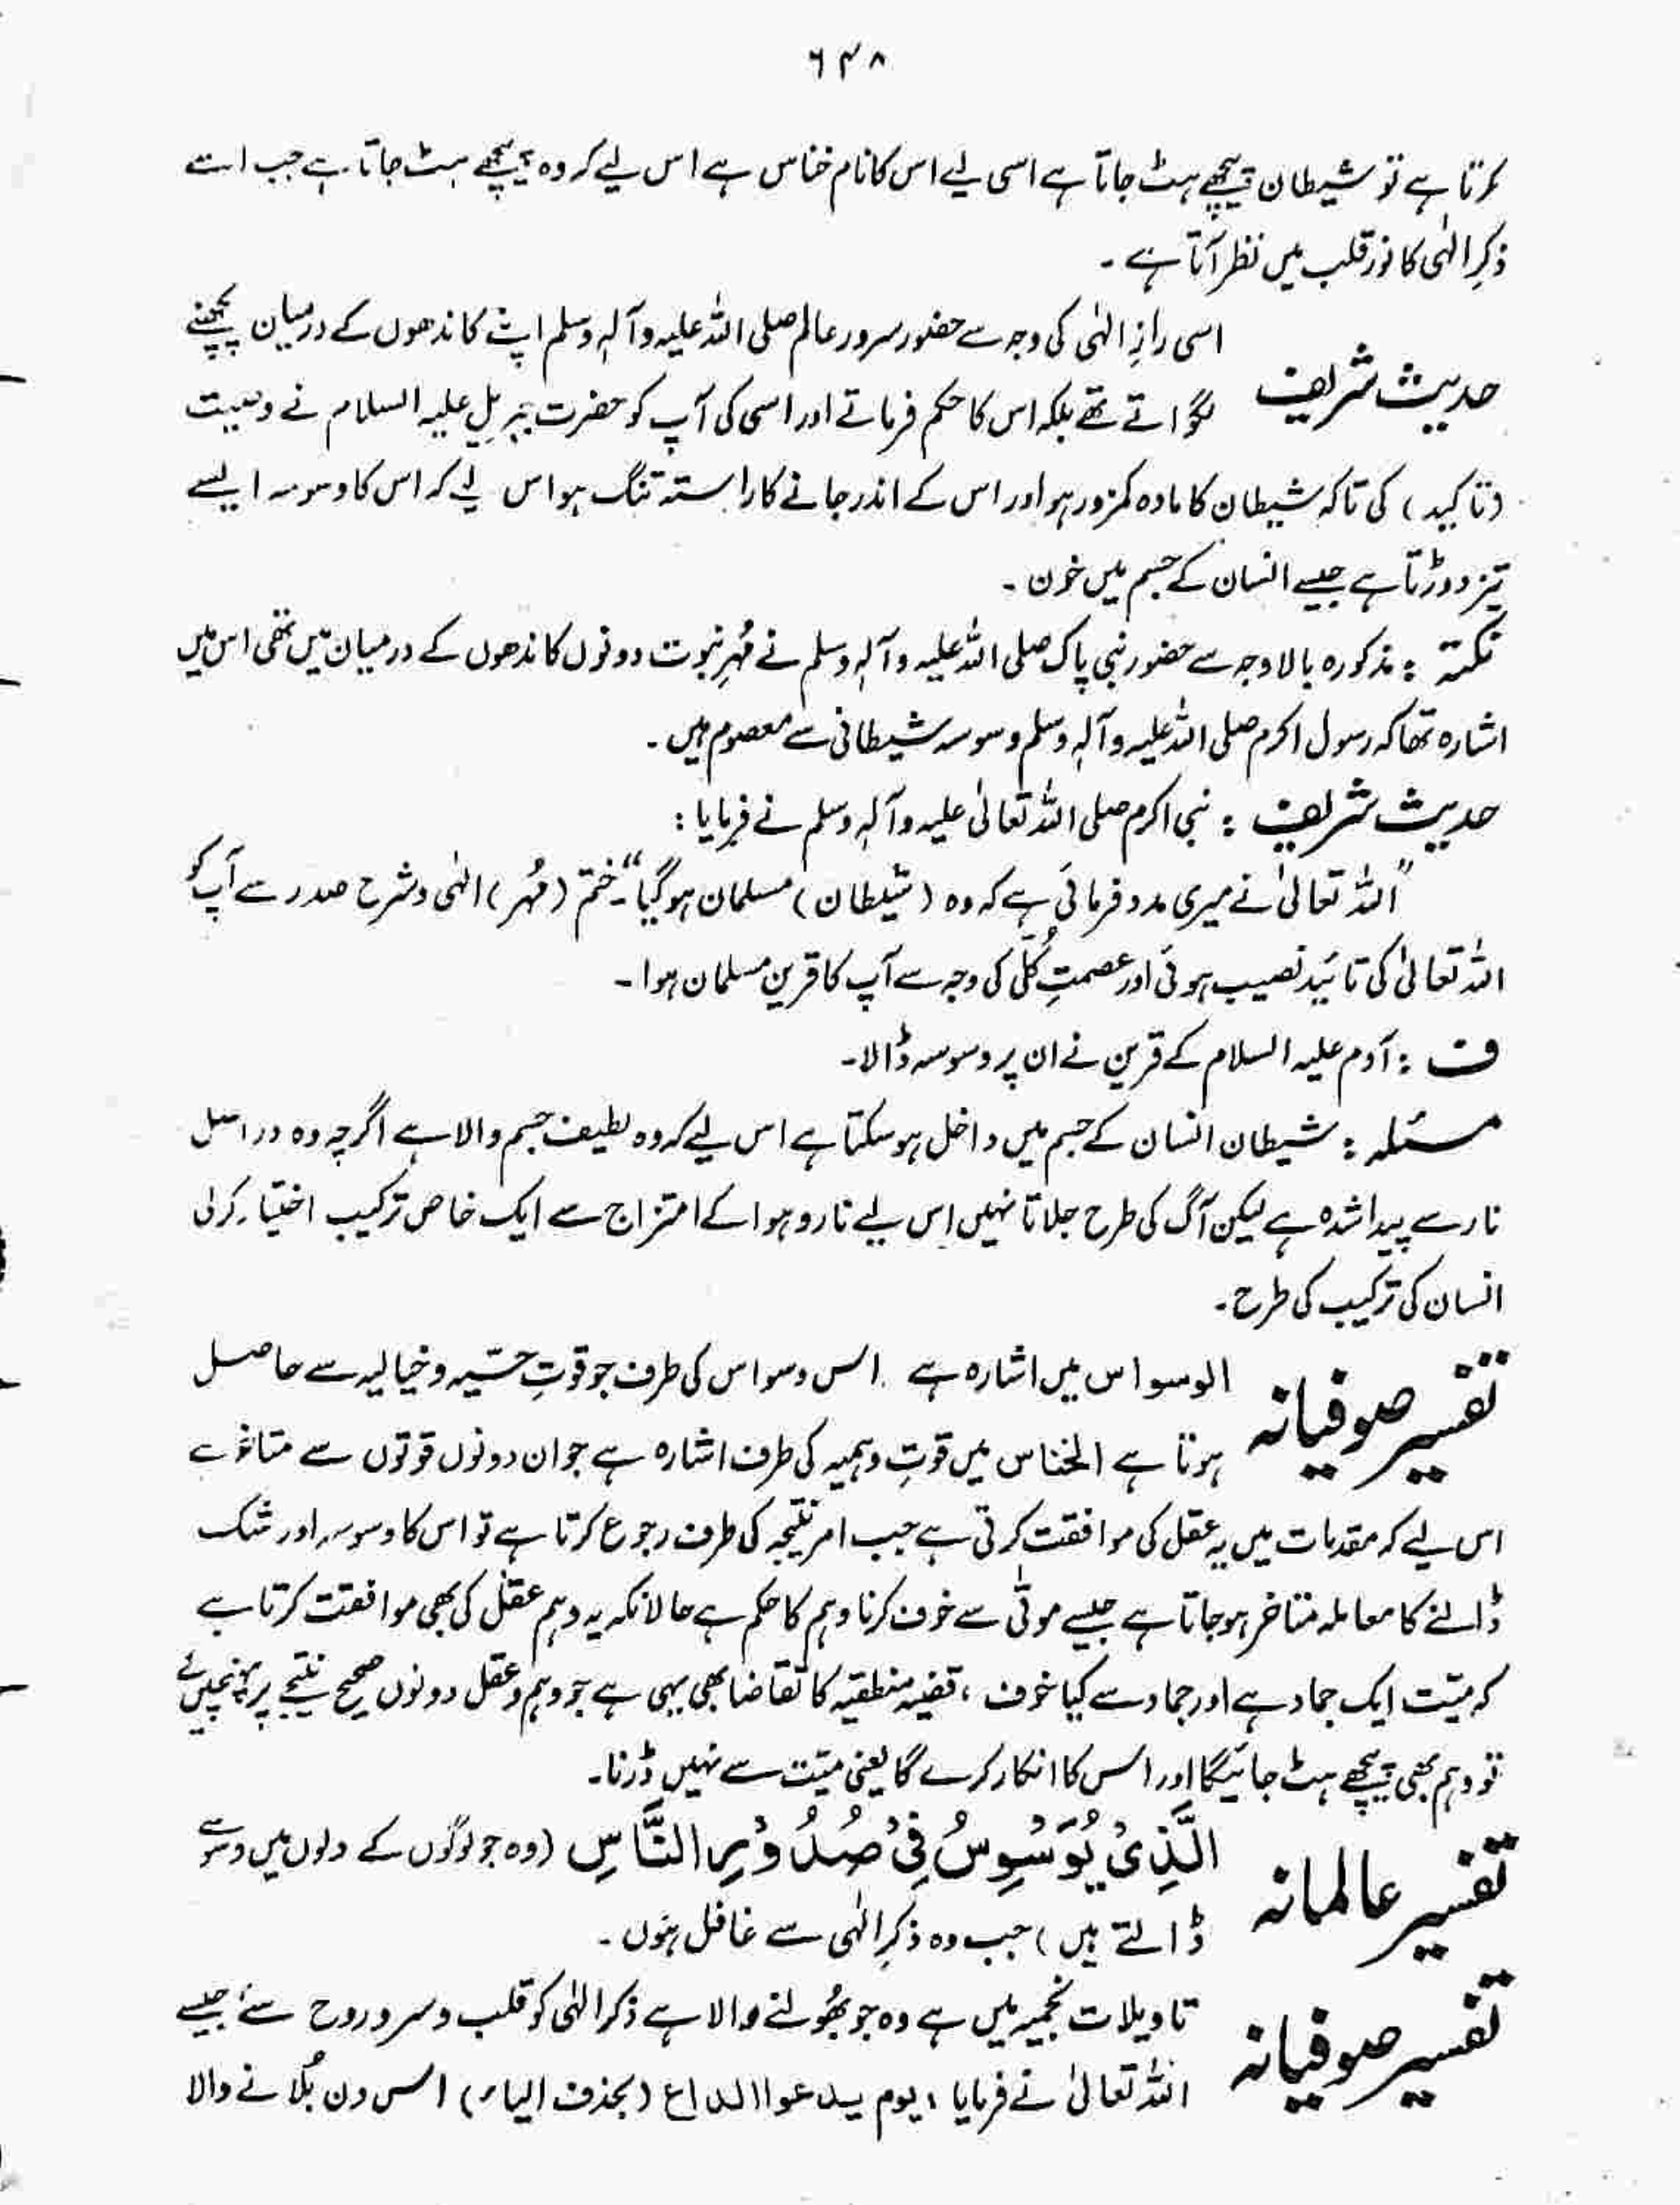 ۶۴۸
کرتا ہے تو شیطان پیچھے ہٹ جاتا ہے اسی لیے اس کا نام خناس ہے اس لیے کہ وہ پیچھے ہٹ جاتا ہے جب اسے
ذکرِ الٰہی کا نور قلب میں نظر آتا ہے ۔
حدیث شریف اسی رازِ الٰہی کی وجہ سے حضور سرور عالم صلی اللہ علیہ وآلہٖ وسلم اپنے کاندھوں کے درمیان پچھنے
لگواتے تھے بلکہ اس کا حکم فرماتے اور اسی کی آپ کو حضرت جبریل علیہ السلام نے وصیت
(تاکید) کی تاکہ شیطان کا مادہ کمزور ہو اور اس کے اندر جانے کا راستہ تنگ ہو اس لیے کہ اس کا وسوسہ ایسے
تیز دوڑتا ہے جیسے انسان کے جسم میں خون ۔
نکتہ : مذکورہ بالا وجہ سے حضور نبی پاک صلی اللہ علیہ وآلہٖ وسلم نے مُہرِ نبوت دونوں کاندھوں کے درمیان میں تھی اس میں
اشارہ تھا کہ رسول اکرم صلی اللہ علیہ وآلہٖ وسلم وسوسہ شیطانی سے معصوم ہیں ۔
حدیث شریف : نبی اکرم صلی اللہ تعالیٰ علیہ وآلہٖ وسلم نے فرمایا :
”اللہ تعالیٰ نے میری مدد فرمائی ہے کہ وہ (شیطان) مسلمان ہو گیا“۔ ختم (مُہر) الٰہی و شرح صدر سے آپ کو
اللہ تعالیٰ کی تائید نصیب ہوئی اور عصمتِ کُلّی کی وجہ سے آپ کا قرین مسلمان ہوا ۔
ف : آدم علیہ السلام کے قرین نے ان پر وسوسہ ڈالا۔
مسئلہ : شیطان انسان کے جسم میں داخل ہو سکتا ہے اس لیے کہ وہ لطیف جسم والا ہے اگرچہ وہ دراصل
نار سے پیدا شدہ ہے لیکن آگ کی طرح جلاتا نہیں اس لیے نار و ہوا کے امتزاج سے ایک خاص ترکیب اختیار کر لی
انسان کی ترکیب کی طرح۔
تفسیر صوفیانہ الوسواس میں اشارہ ہے اس وسواس کی طرف جو قوتِ حسّیہ و خیالیہ سے حاصل
ہوتا ہے الخناس میں قوتِ وہمیہ کی طرف اشارہ ہے جو ان دونوں قوتوں سے متاخر ہے
اس لیے کہ مقدمات میں یہ عقل کی موافقت کرتی ہے جب امر نتیجہ کی طرف رجوع کرتا ہے تو اس کا وسوسہ اور شک
ڈالنے کا معاملہ متاخر ہو جاتا ہے جیسے موتٰی سے خوف کرنا وہم کا حکم ہے حالانکہ یہ وہم عقل کی بھی موافقت کرتا ہے
کہ میّت ایک جماد ہے اور جماد سے کیا خوف ، قضیہ منطقیہ کا تقاضا بھی یہی ہے جو وہم و عقل دونوں صحیح نتیجے پر پہنچیں گے
تو وہم بھی پیچھے ہٹ جائیگا اور اس کا انکار کرے گا یعنی میّت سے نہیں ڈرنا۔
تفسیر عالمانہ الَّذِیْ یُوَسْوِسُ فِیْ صُدُوْرِ النَّاسِ (وہ جو لوگوں کے دلوں میں وسوسے
ڈالتے ہیں) جب وہ ذکرِ الٰہی سے غافل ہوں ۔
تفسیر صوفیانہ تاویلات نجمیہ میں ہے وہ جو بھُولنے والا ہے ذکر الٰہی کو قلب و سر و روح سے ، جیسے
اللہ تعالیٰ نے فرمایا ، یوم یدعوا الداع (بحذف الیاء) اس دن بُلانے والا